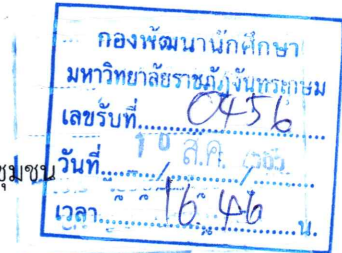 กองพัฒนานักศึกษา
มหาวิทยาลัยราชภัฏจันทรเกษม
เลขรับที่ 0456
ชุมชน
วันที่ 10 / ส.ค. /
เวลา 16.46 น.